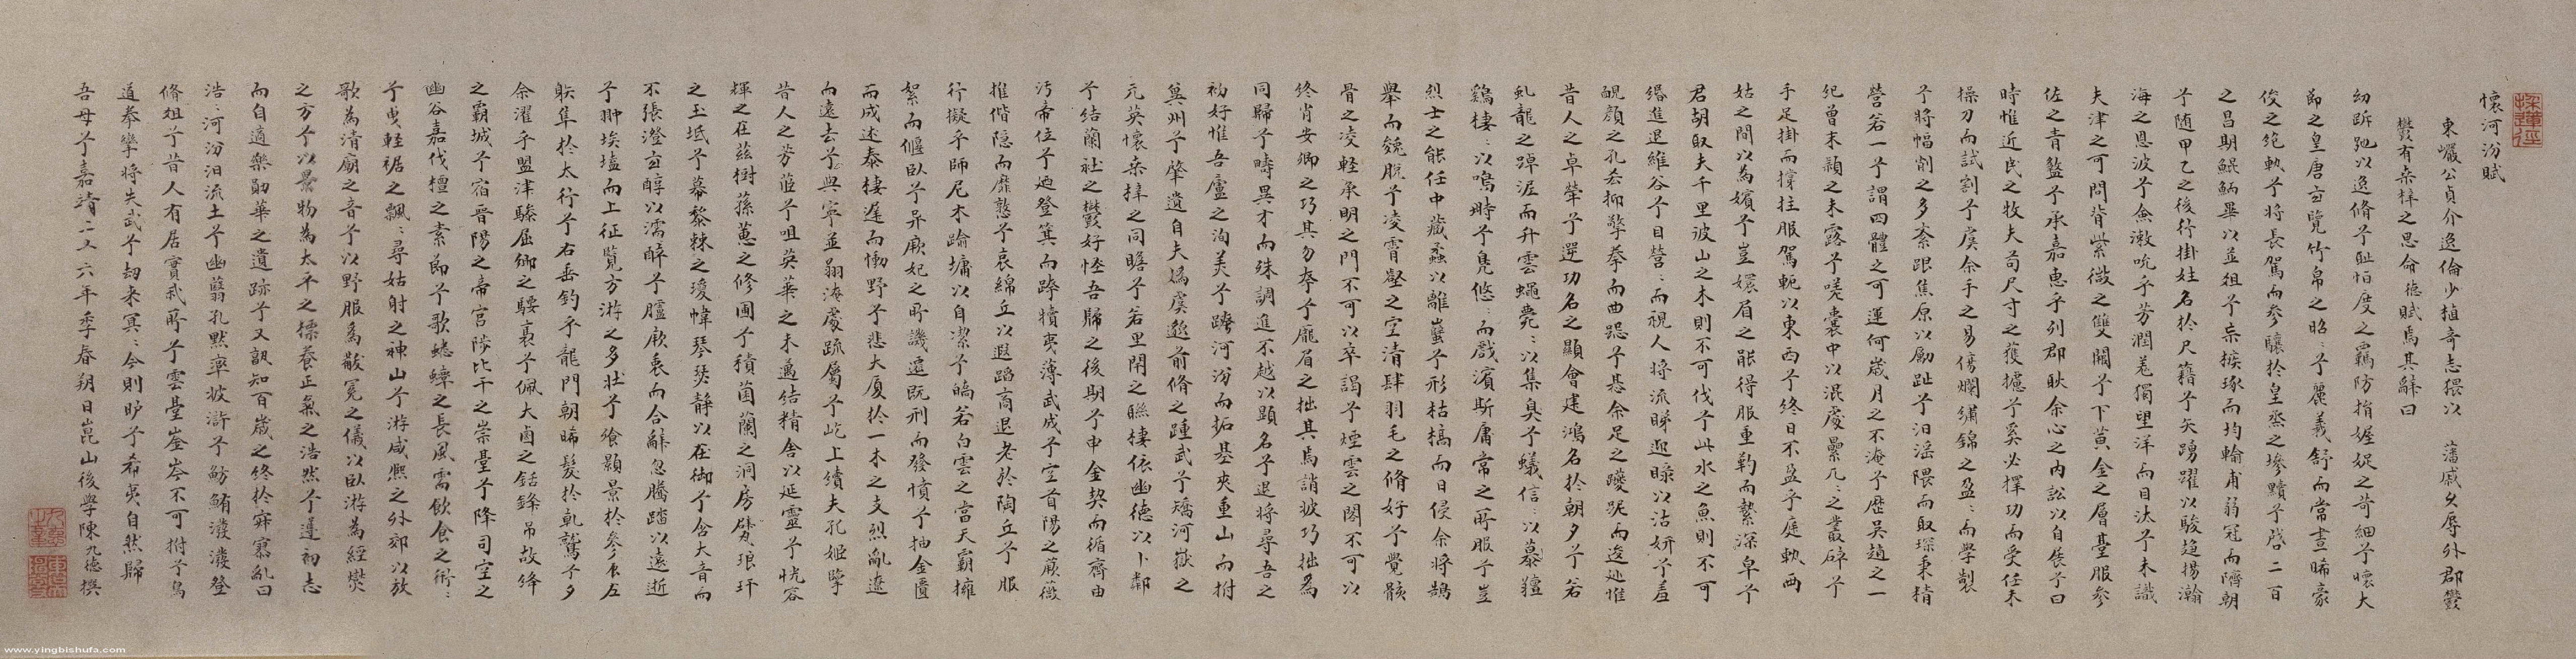 懷河汾賦
東巖公貞介逸倫少植奇志猥以 藩戚久辱外郡鬱
鬱有桑梓之思命德賦焉其辭曰
幼跅弛以逸脩兮恥怕度之羈防揹娓娖之苛細兮懷大
節之皇唐亙覽竹帛之昭兮麗義舒而常晝睎豪
俊之絕軌兮將長駕而參驤於皇烝之墋黷兮啓二百
之昌期鯤鯆畢以並徂兮采掞琢而均輪甫弱冠而隮朝
兮隨甲乙之後行掛姓名於尺籍兮矢踴躍以駿趨揚瀚
海之恩波兮僉漱吮乎芳潤羌獨望洋而自汰兮未識
夫津之可問背紫微之雙闕兮下黃金之層臺服參
佐之青盭兮承嘉惠乎列郡耿余心之內訟以自展兮曰
時惟近民之牧夫苟尺寸之獲攄兮奚必擇功而受任未
操刀而試割兮虞余手之易傷斕繡錦之盈盈而學製
兮將幅削之多紊跟焦原以勵趾兮汨滛隈而取琛秉精
營若一兮謂四體之可運何歲月之不淹兮歷吳趙之一
紀曾末穎之未露兮嗟囊中以混處纍几之叢碎兮
手足掛而撐拄服駕軛以東西兮終日不盈乎庭軌西
姑之間以為嬪兮豈嬛眉之能得服重靮而縶深皁兮
君胡取夫千里彼山之木則不可伐兮此水之魚則不可
緡進退維谷兮目營營而視人將流睇迎睩以沽妍兮羞
靦顏之孔丕抑擎拳而曲跽兮惎余足之躨跜而逡處惟
昔人之卓犖兮選功名之顯會建鴻名於朝夕兮若
虬龍之踔涯而升雲蠅薨薨以集臭兮蟻信信以慕羶
鷄棲棲以鳴塒兮鳧悠悠而戲濱斯庸常之所服兮豈
烈士之能任中藏蠡以離蠥兮形枯槁而日侵余將鵠
舉而蛻脫兮凌霄壑之空清肆羽毛之脩好兮覺骸
骨之凌輕承明之門不可以卒謁兮煙雲之閣不可以
終肖安卿之巧其勿奉兮龐眉之拙其焉誚彼巧拙為
同歸兮疇異才而殊調進不越以顯名兮退將尋吾之
初好惟吾廬之洵美兮躋河汾而拓基夾重山而拊
冀州兮肇遺自夫媯虞邈前脩之踵武兮矯河嶽之
元英懷桑梓之同瞻兮若里閈之聯棲依幽德以卜鄰
兮結蘭社之鬱好恠吾歸之後期兮申金契而循齊由
汚帝位兮迺登箕而踔犢夷薄武成兮空首陽之蕨薇
推偕隱而靡憝兮哀綿丘以遐蹈高退老於陶丘兮服
行擬乎師尼木踰墉以自潔兮皜若白雲之當天霸擁
絮而偃臥兮异厥妃之所譏遷既刑而發憤兮抽金匱
而成述泰棲遲而慟野兮悲大廈於一木之支烈亂遼
而遠去兮與寧並翦淹處疏屬兮屹上續夫孔姬擥
昔人之芳蒞兮咀英華之未邁結精舍以延靈兮恍容
輝之在茲樹蓀蕙之修圃兮積菌蘭之洞房辟琅玕
之玉坻兮幕黎棘之瓊幃琴瑟靜以在御兮含大音而
不張澄亙醇以濡醉兮臚厥衷而合辭忽騰踏以遠逝
兮翀埃壒而上征覽方游之多壯兮飧顥景於參辰左
眹隼於太行兮右垂釣乎龍門朝晞髮於虬鷲兮夕
余濯乎盟津驂屈卿之騕褭兮佩大鹵之銛鋒吊故絳
之霸城兮宿晉陽之帝宮陟比干之崇臺兮降司空之
幽谷嘉伐檀之素節兮歌蟋蟀之長風需飲食之衎衎
兮曳輕裾之飄飄尋姑射之神山兮游咸熙之外郊以放
歌為清廟之音兮以野服為黻冕之儀以臥游為經樊
之方兮以景物為太平之標養正氣之浩然兮遵初志
而自適樂勛華之遺跡兮又詎知百歲之終於寂寞亂曰
浩浩河汾汨流土兮幽翳孔默寧坡滸兮魴鮪潑潑登
脩俎兮昔人有居實我所兮雲臺崟岑不可拊兮鳥
道拳攣將失武兮劫來冥冥今則旷兮希夷自然歸
吾母兮嘉靖二五六年季春朔日崑山後學陳九德撰
www.yingbishufa.com